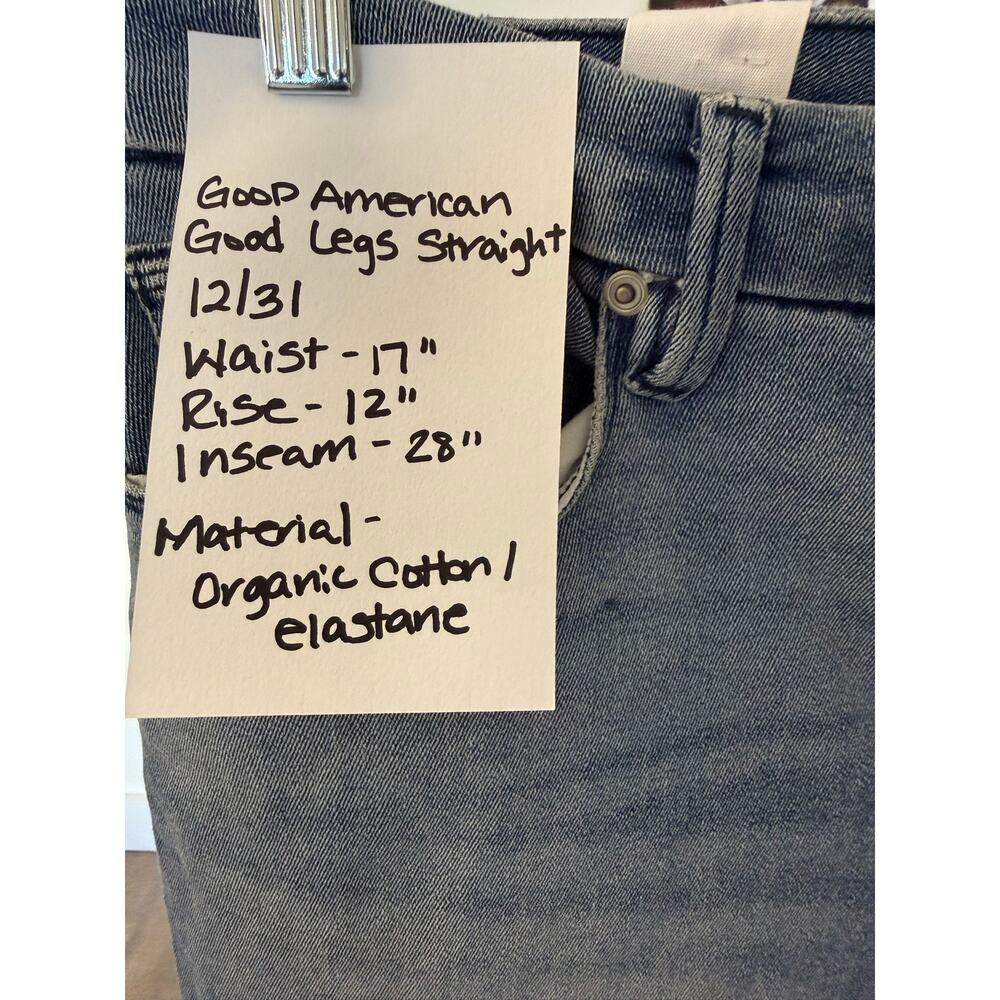 Good American
Good Legs Straight
12/31
Waist - 17"
Rise - 12"
Inseam - 28"
Material -
Organic Cotton /
elastane